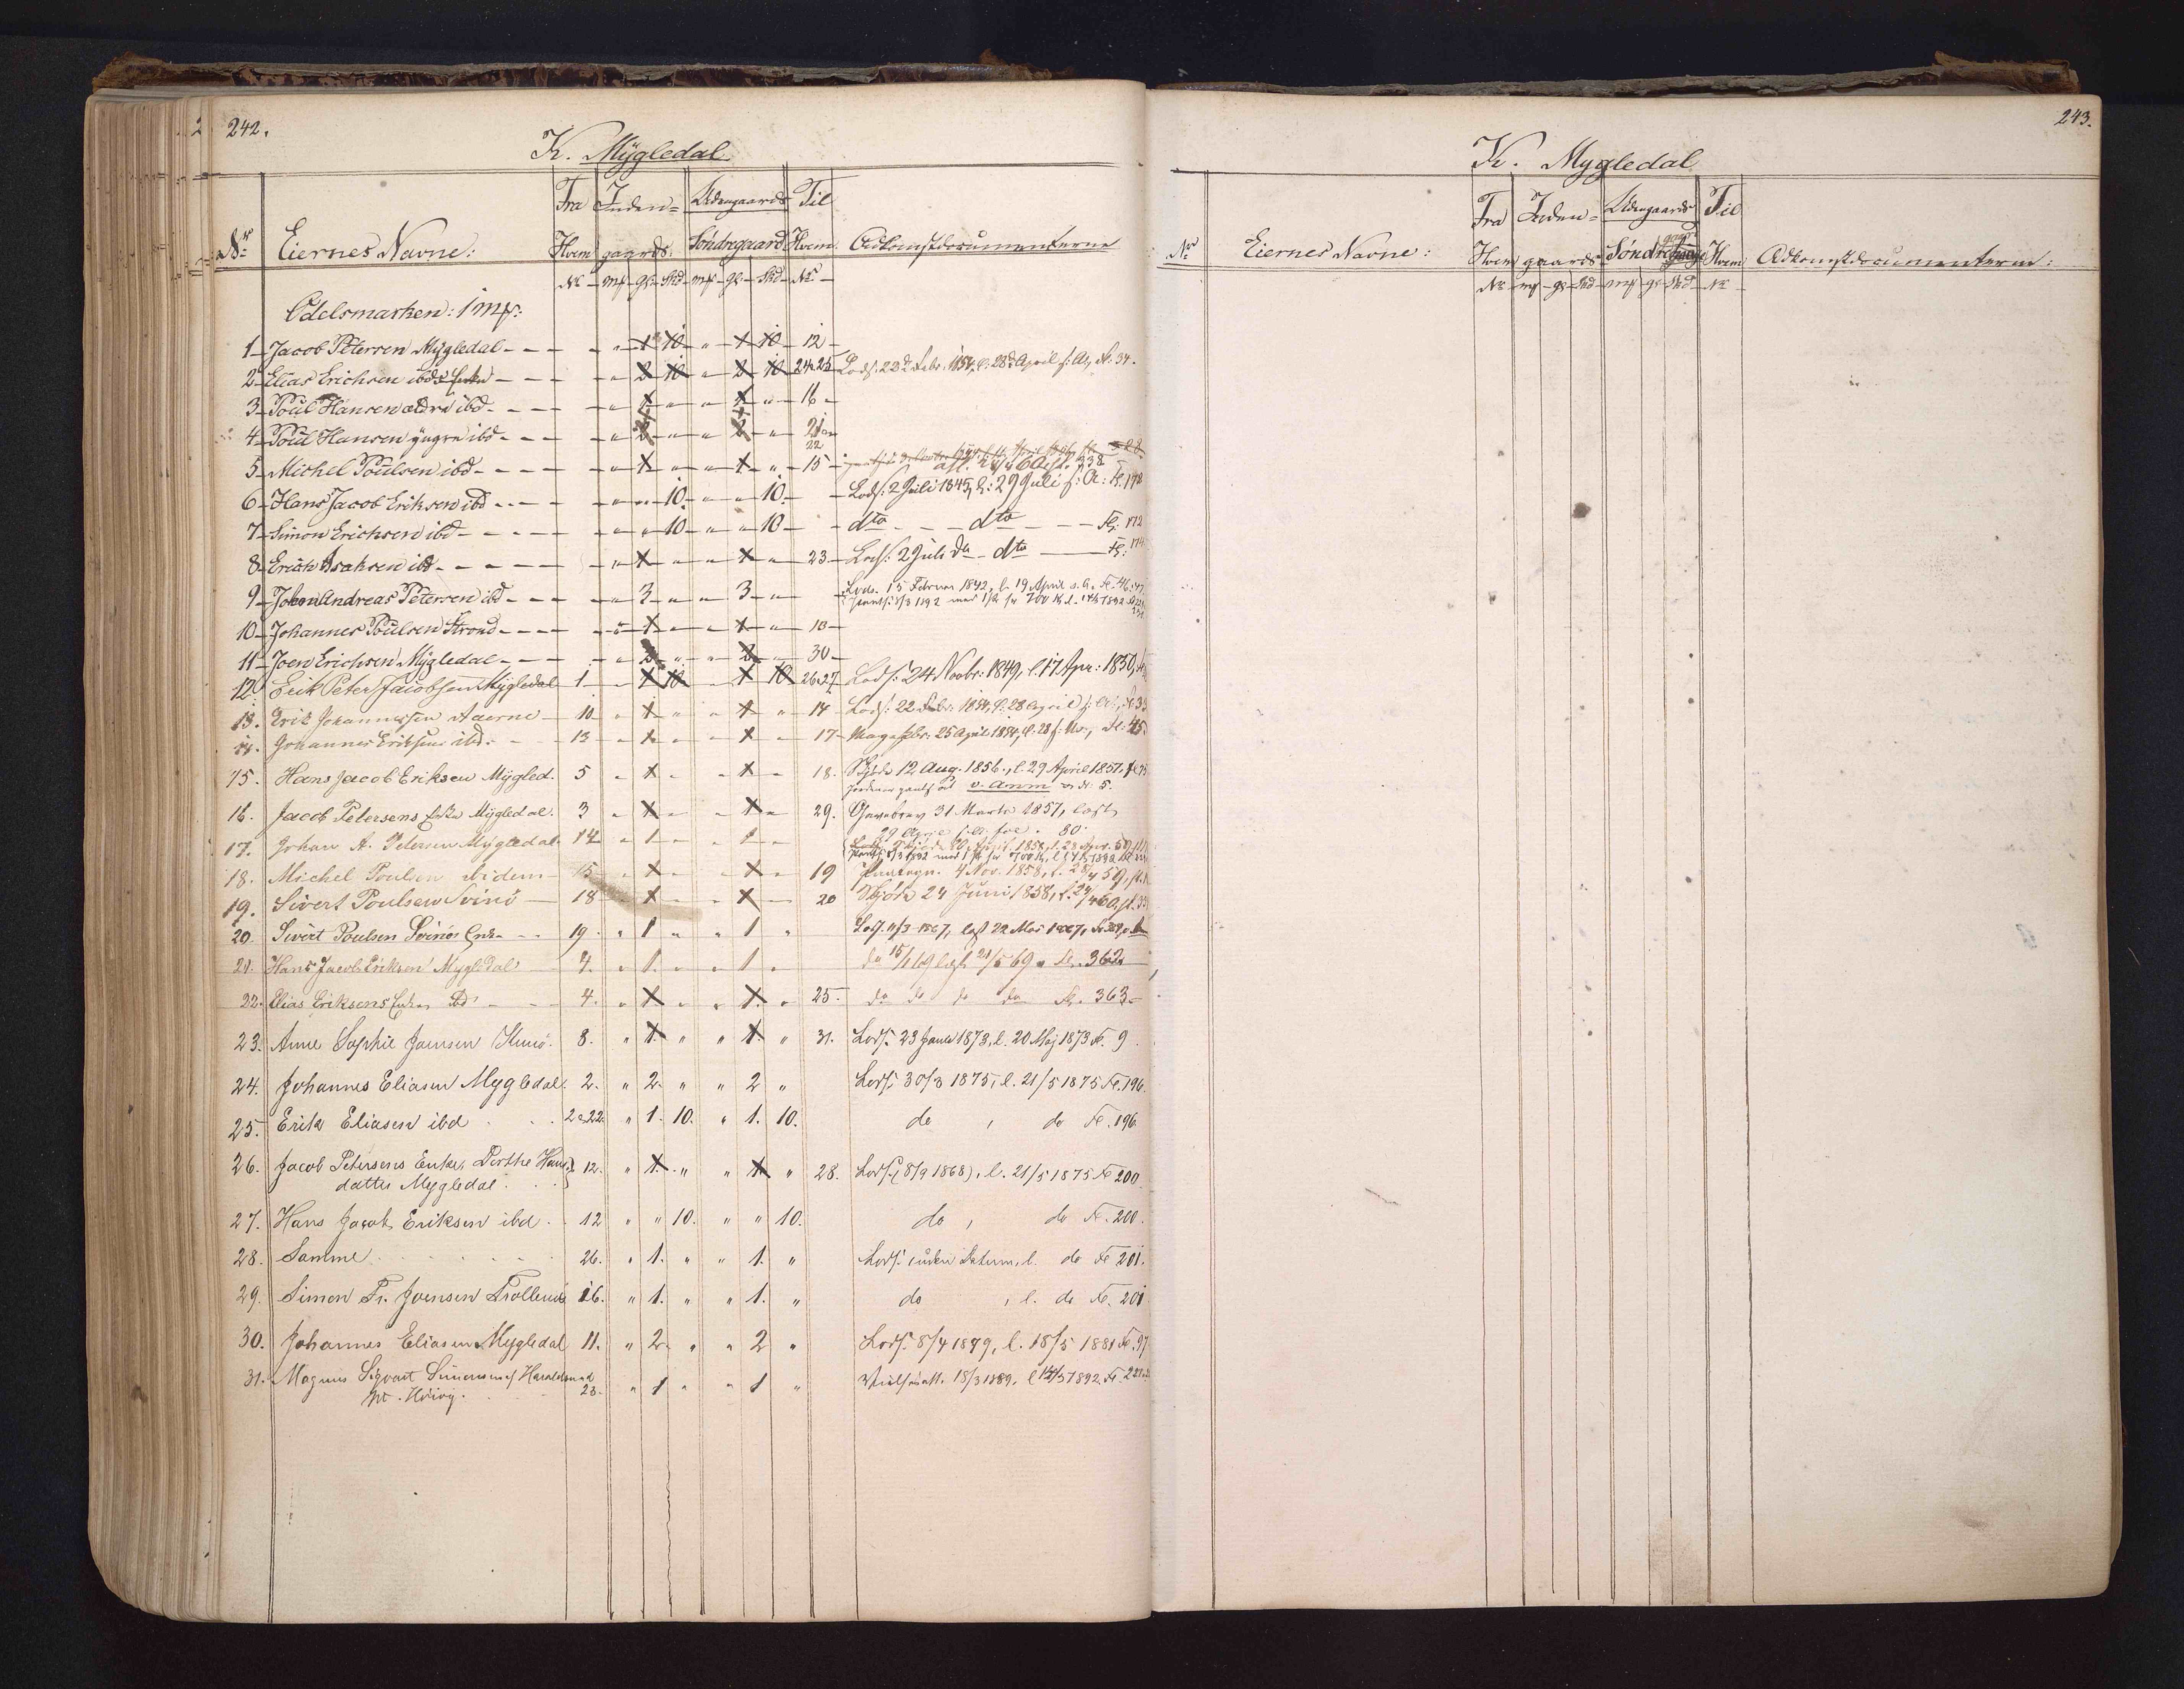 242.
K. Mÿgledal.
Nr. Eiernes Navne: Fra Hvem Nr. Inden= gaards. mk gl. Skd Udengaards Søndregaard mk gl. Skd Til Hvem Nr. Adkomstdocumenterne
Odelsmarken: 1 mk:
1 Jacob Petersen Mÿgledal - - - " 1 10 " 1 10 12
2 Elias Erichsen ibds Enke - - - " 2 10 " 2 10 24 25 Lods. 22d Febr. 1854, l. 28d April s. A., Fl. 34.
3 Poul Hansen ældre ibd - - - " 1 " " 1 " 16
4 Poul Hansen yngre ibd - - - " 2 " " 2 " 21 22
5 Michel Poulsen ibd - - - " 1 " " 1 " 15
6 Hans Jacob Eriksen ibd - - - " " 10 " " 10 Lods. 2 Juli 1845, l: 29 Juli s: A: Fl. 172
7 Simon Erichsen ibd - - - " " 10 " " 10 dto - - dto - - Fl. 172
8 Erich Isaksen ibd - - - " 1 " " 1 " 23 Lods. 2 Juli da dto Fl: 174
9 Johan Andreas Petersen ibd - - - " 3 " " 3 " Lods. 15 Februar 1842, l. 19 April s. A. Fl. 46.
10 Johannes Poulsen Strond - - - " 1 " " 1 " 13
11 Joen Erichsen Mÿgledal - - - " 2 " " 2 " 30
12 Erik Peter Jacobsen Mÿgledal 1 " 1 10 " 1 10 26.27 Lods: 24 Novbr: 1849, l. 17 Apr: 1850,
13. Erik Johannessen Aaerne 10 " 1 " " 1 " 14 Lods: 22 Febr: 1854, l: 28 April s: A.,
14. Johannes Eriksen ibd. 13 " 1 " " 1 " 17 Mageskbr. 25 April 1854, l. 28 s: M., Fl: 45
15. Hans Jacob Eriksen Mÿgled. 5 " 1 " " 1 " 18. Skjøde 12 Aug. 1856., l. 29 April 1857,
16. Jacob Petersens Enke Mÿgledal. 3 " 1 " " 1 " 29. Gavebrev 31 Marts 1857, læst
29 April s. A. fol. 80.
17. Johan A. Petersen Mÿgledal. 14 " 1 " " 1 "
18. Michel Poulsen ibidem 15 " 1 " " 1 " 19 4 Nov. 1858, l. 28/4 59,
19. Sivert Poulsen Svinö 18 " 1 " " 1 " 20 Skjöde 24 Juni 1858, l. 24/4 60,
20. Sivert Poulsen Svinös Enke 19. " 1 " " 1 " Lods. 11/3 1867, læst 22 Mai 1867,
21. Hans Jacob Eriksen Mygledal 4. " 1. " " 1. " do 15/1 69 læst 21/5 69 Fl. 362
22. Elias Eriksens Enke, ibd. 4. " 1 " " 1. " 25. do do do do Fl. 363
23. Anne Sophie Joensen Kunö. 8. " 1. " " 1. " 31. Lods. 23 Janr 1873, l. 20 Maj 1873 Fl. 9.
24. Johannes Eliasen Mygledal. 2. " 2. " " 2 " Lods. 30/3 1875, l. 21/5 1875 Fl. 196.
25. Erik Eliasen ibd . . . 2 & 22 " 1. 10. " 1. 10. do , do Fl. 196
26. Jacob Petersens Enke, Birthe Hans- 12. " 1. " " 1. " 28. Lods. (8/9 1868), l. 21/5 1875 Fl 200.
datter Mygledal.
27. Hans Jacob Eriksen ibd. 12 " " 10. " " 10. do , do Fl. 200.
28. Samme 26. " 1. " " 1. " Lods. uden Datum, l. do Fl 201.
29. Simon Fr. Joensen Trøllenæs 16. " 1. " " 1. " do , l. do Fl. 201
30. Johannes Eliasen Mygledal 11. " 2. " " 2 " Lods. 8/4 1879, l. 18/5 1881 Fl. 97
31. Magnus Sigvart Simonsen af Haraldsund 23. " 1 " " 1 "
243.
K. Mygledal
Nr. Eiernes Navne: Fra Hvem Nr. Inden= gaards mk gl Skd Udengaards Søndregaard mk gl Skd Til Hvem Nr. Adkomstdocumenterne: